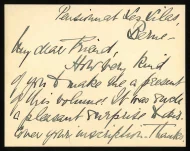 Pension at Les Lilas,
Berne.
My dear Friend,
How very kind
of you to make me a present
of this volume! It was such
a pleasant surprise to dis-
cover your inscription. Thanks